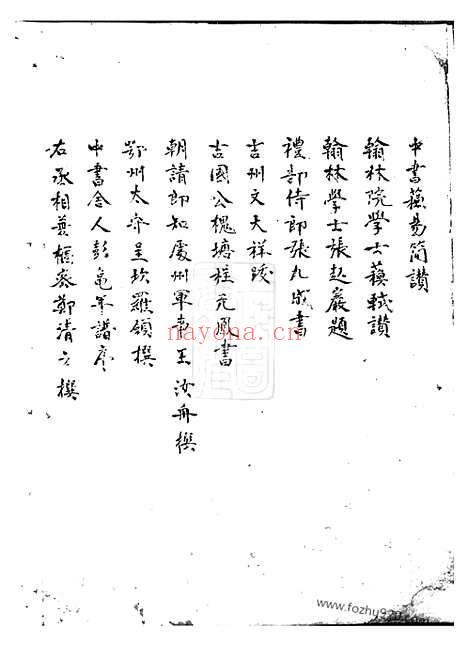 中書蘇易簡讚
翰林院學士蘇軾讚
翰林學士張起巖題
禮部侍郎張九成書
吉州文天祥跋
吉國公槐塘程元鳳書
朝請郎知處州軍事王汝舟撰
鄂州太守呈坎羅頌撰
中書舍人彭龜年譜序
右丞相兼樞參鄭清之撰
nayona.cn
www.fozhy920.com